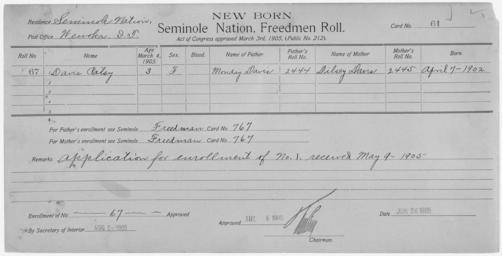 NEW BORN.
Residence Seminole Nation,
Seminole Nation, Freedmen Roll.
Card No. 61
Post Office Wewoka, I.T.
Act of Congress approved March 3rd, 1905, (Public No. 212).
Roll No. Name Age March 4, 1905. Sex. Blood. Name of Father Father's Roll No. Name of Mother Mother's Roll No. Born
67 Davis Patsy 3 F Monday Davis 2444 Dilsey Davis 2445 April 7-1902
For Father's enrollment see Seminole Freedman Card No. 767
For Mother's enrollment see Seminole Freedman Card No. 767
Remarks Application for enrollment of No. 1. received May 9-1905
Enrollment of No 67 Approved
Approved
Date
By Secretary of Interior
Chairman.